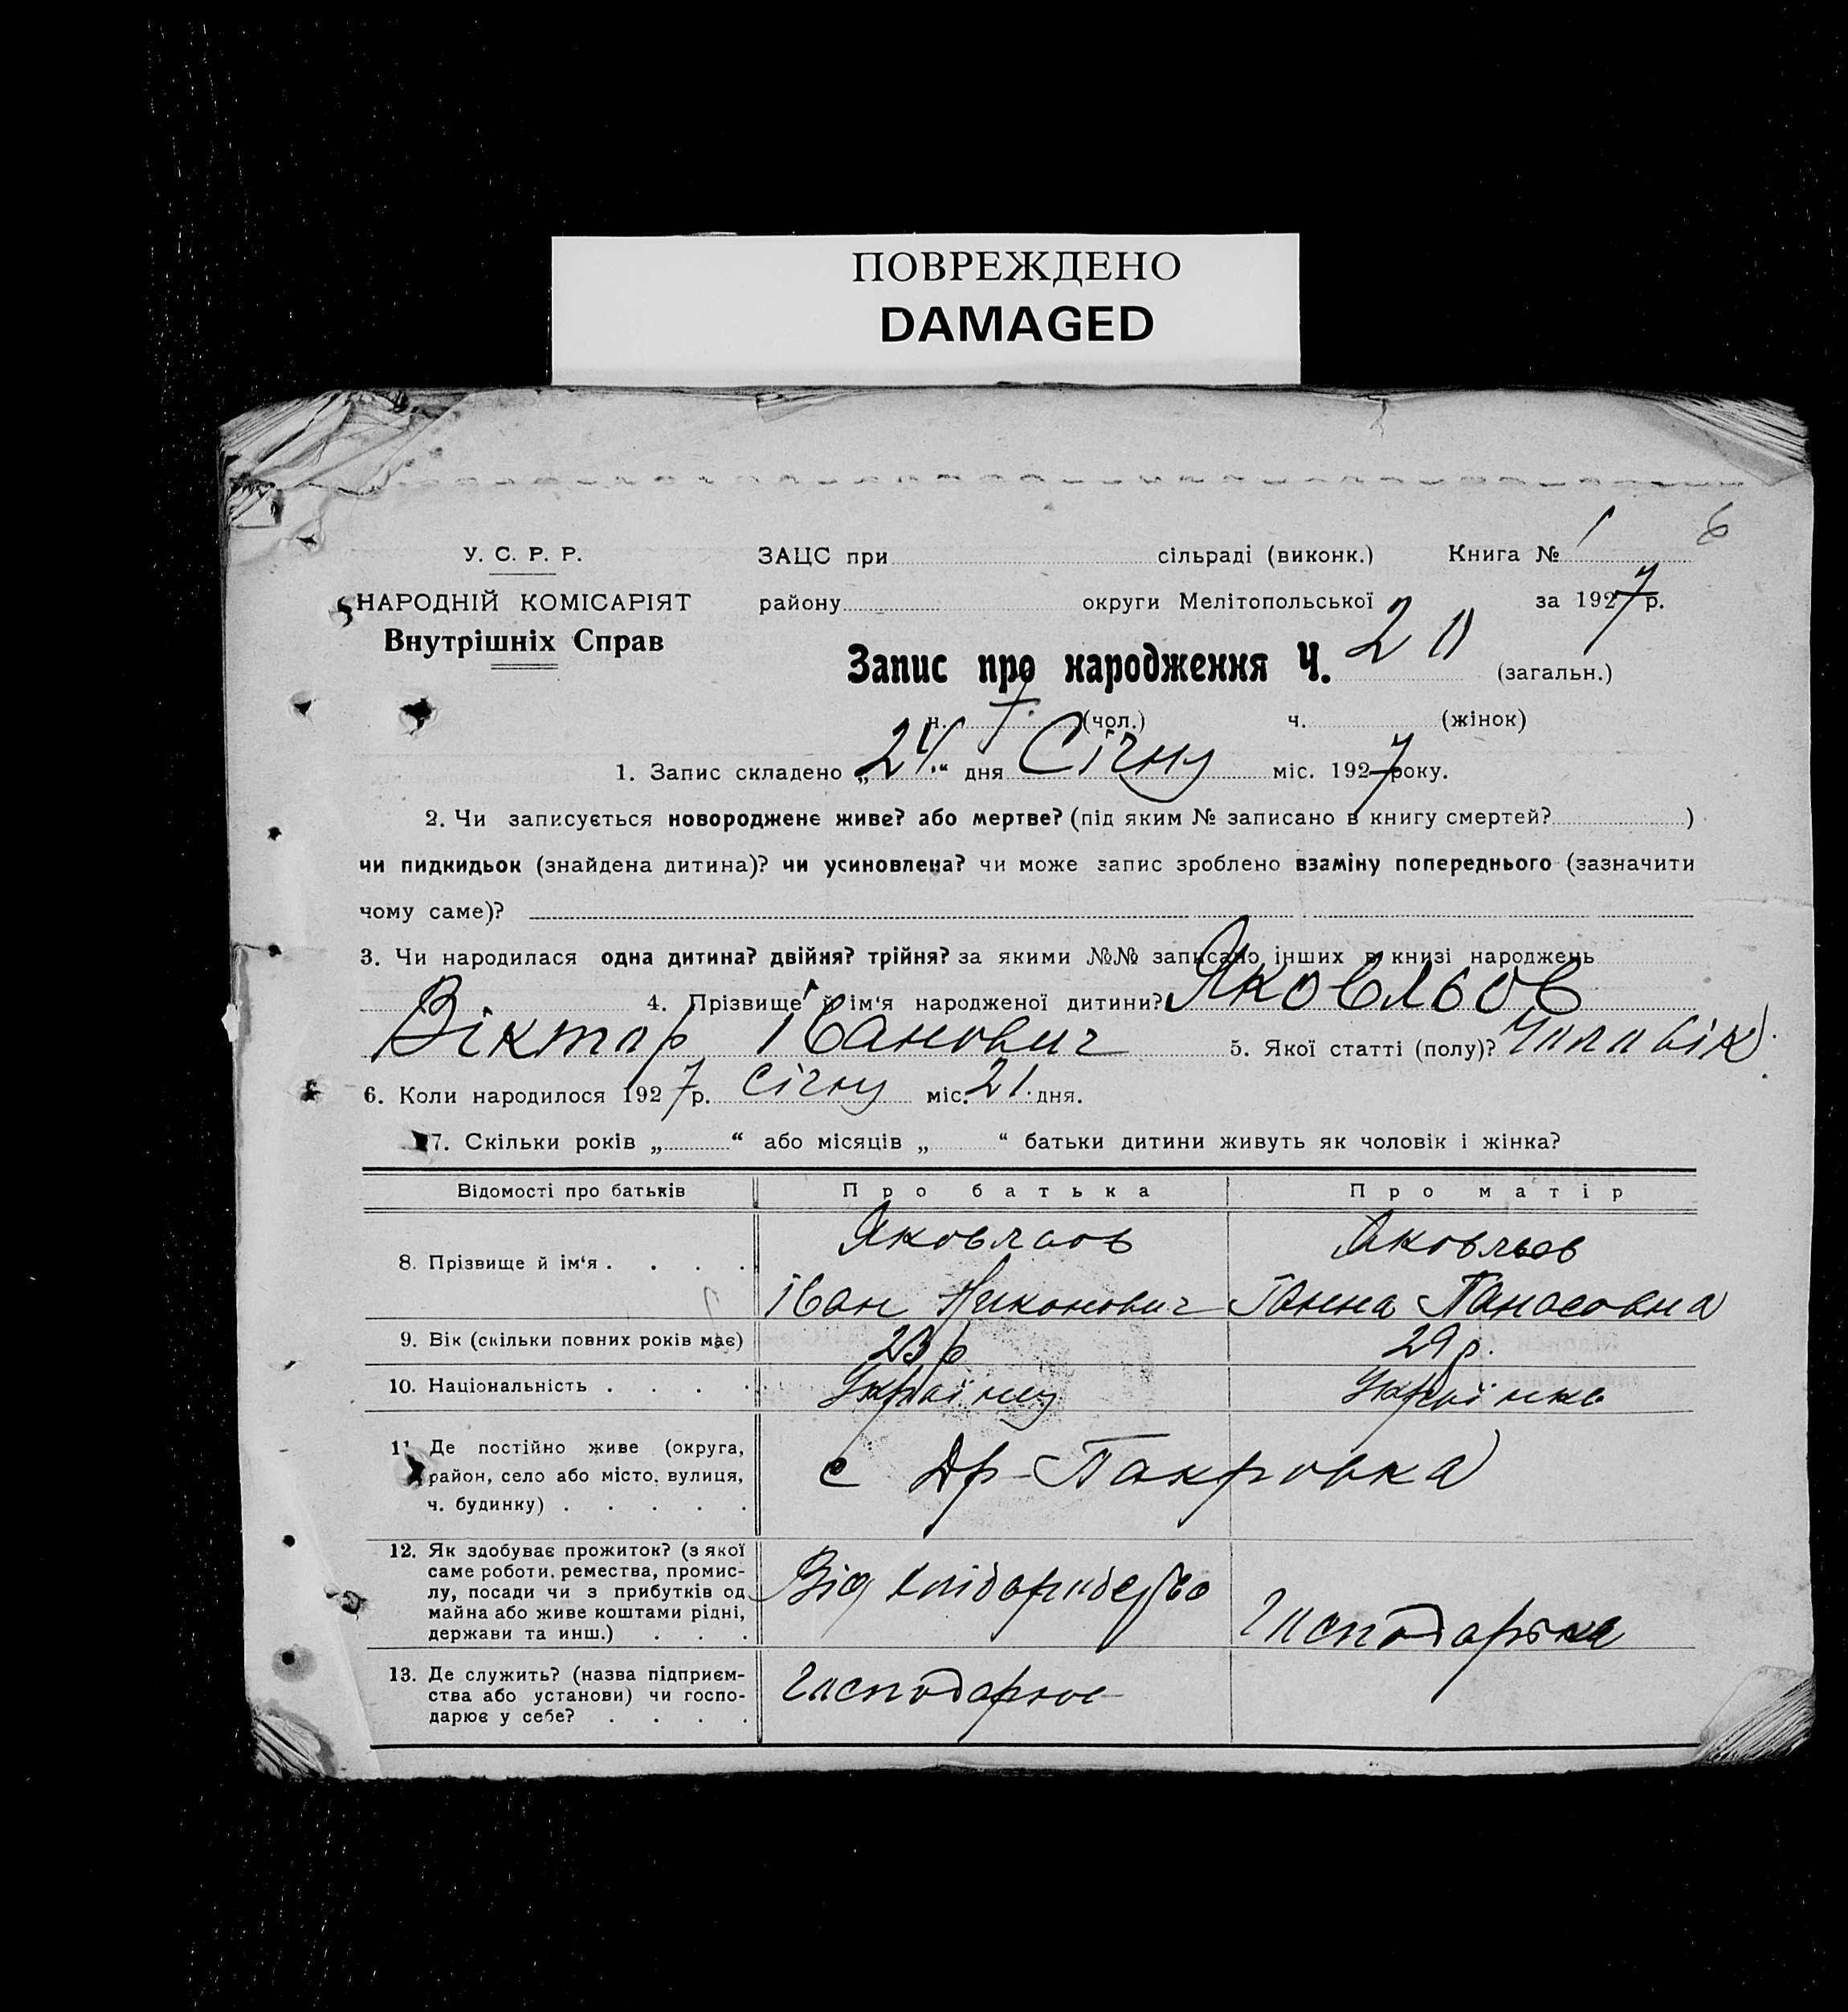 ПОВРЕЖДЕНО
DAMAGED
6
У. С. Р. Р.
НАРОДНІЙ КОМІСАРІЯТ
Внутрішніх Справ
ЗАЦС при сільраді (виконк.) Книга № 1
району округи Мелітопольської за 1927 р.
Запис про народження Ч. 20 (загальн.)
н. 7. (чол.) ч. (жінок)
1. Запис складено „24“ дня Січну міс. 1927 року.
2. Чи записується новороджене живе? або мертве? (під яким № записано в книгу смертей? )
чи пидкидьок (знайдена дитина)? чи усиновлена? чи може запис зроблено взаміну попереднього (зазначити
чому саме)?
3. Чи народилася одна дитина? двійня? трійня? за якими №№ записано інших в книзі народжень
4. Прізвище й ім'я народженої дитини? Яковльов
Віктор Іванович 5. Якої статті (полу)? Чоловік
6. Коли народилося 1927 р. Січну міс. 21. дня.
7. Скільки років „ “ або місяців „ “ батьки дитини живуть як чоловік і жінка?
Відомості про батьків Про батька Про матір
8. Прізвище й ім'я . . . . Яковльов Яковльов
Іван Никонович Ганна Панасовна
9. Вік (скільки повних років має) 23 р 29 р.
10. Національність . . . . Українец Українка
11. Де постійно живе (округа,
район, село або місто, вулиця,
ч. будинку) . . . . .
с Др-Покровка
12. Як здобуває прожиток? (з якої
саме роботи, ремества, промис-
лу, посади чи з прибутків од
майна або живе коштами рідні,
держави та инш.) . . .
Від
Господарька
13. Де служить? (назва підприєм-
ства або установи) чи госпо-
дарює у себе? . . . .
Господарює